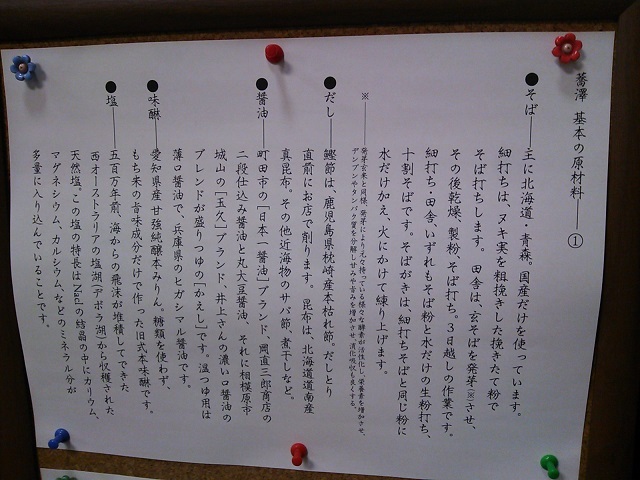 蕎澤 基本の原材料――①
●そば――主に北海道・青森、国産だけを使っています。
細打ちは、ヌキ実を粗挽きした挽きたて粉で
そば打ちします。 田舎は、玄そばを発芽※させ、
その後乾燥、製粉、そば打ち。3日越しの作業です。
細打ち・田舎、いずれもそば粉と水だけの生粉打ち、
十割そばです。そばがきは、細打ちそばと同じ粉に
水だけ加え、火にかけて練り上げます。
※――発芽玄米と同様、発芽により元々持っている様々な酵素が活性化し、栄養素を増加させ、
デンプンやタンパク質を分解しせみや甘みを増加させ、消化吸収も良くする。
●だし――鰹節は、鹿児島県枕崎産本枯れ節、だしとり
直前にお店で削ります。 昆布は、北海道道南産
真昆布。その他近海物のサバ節、煮干しなど。
●醤油――町田市の「日本一醤油」ブランド、岡直三郎商店の
二段仕込み醤油と丸大豆醤油、 それに相模原市
城山の「玉久」ブランド、井上さんの濃い口醤油の
ブレンドが盛りつゆの「かえし」です。温つゆ用は
薄口醤油で、兵庫県のヒガシマル醤油です。
●味醂――愛知県産甘強純醸本みりん。糖類を使わず、
もち米の旨味成分だけで作った旧式本味醂です。
●塩――五百万年前、海からの飛沫が堆積してできた
西オーストラリアの塩湖(デボラ湖)から収穫された
天然塩。この塩の特長はNaclの結晶の中にカリウム、
マグネシウム、カルシウム、などのミネラル分が
多量に入り込んでいることです。